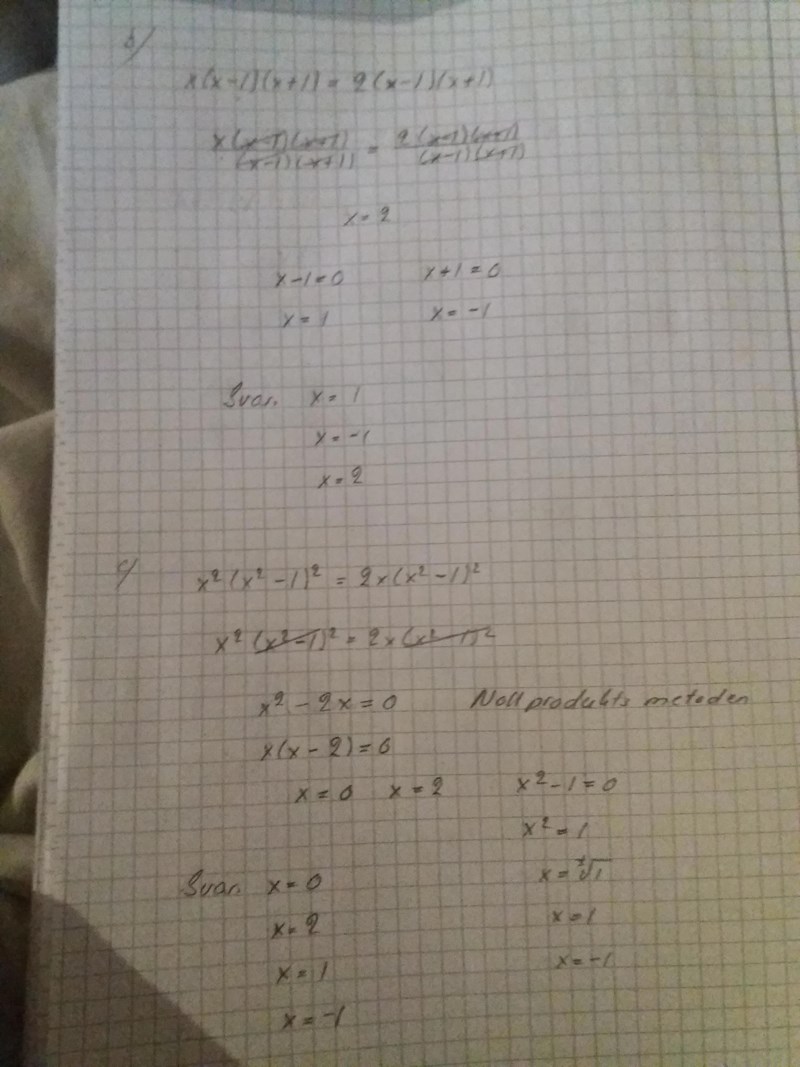 b)
x(x-1)(x+1) = 2(x-1)(x+1)
x(x-1)(x+1) / (x-1)(x+1) = 2(x-1)(x+1) / (x-1)(x+1)
x = 2
x-1=0 x+1=0
x=1 x=-1
Svar. x=1
x=-1
x=2
c)
x²(x²-1)² = 2x(x²-1)²
x²(x²-1)² = 2x(x²-1)²
x²-2x=0 Nollprodukts metoden
x(x-2)=0
x=0 x=2 x²-1=0
x²=1
Svar. x=0 x=±√1
x=2 x=1
x=1 x=-1
x=-1